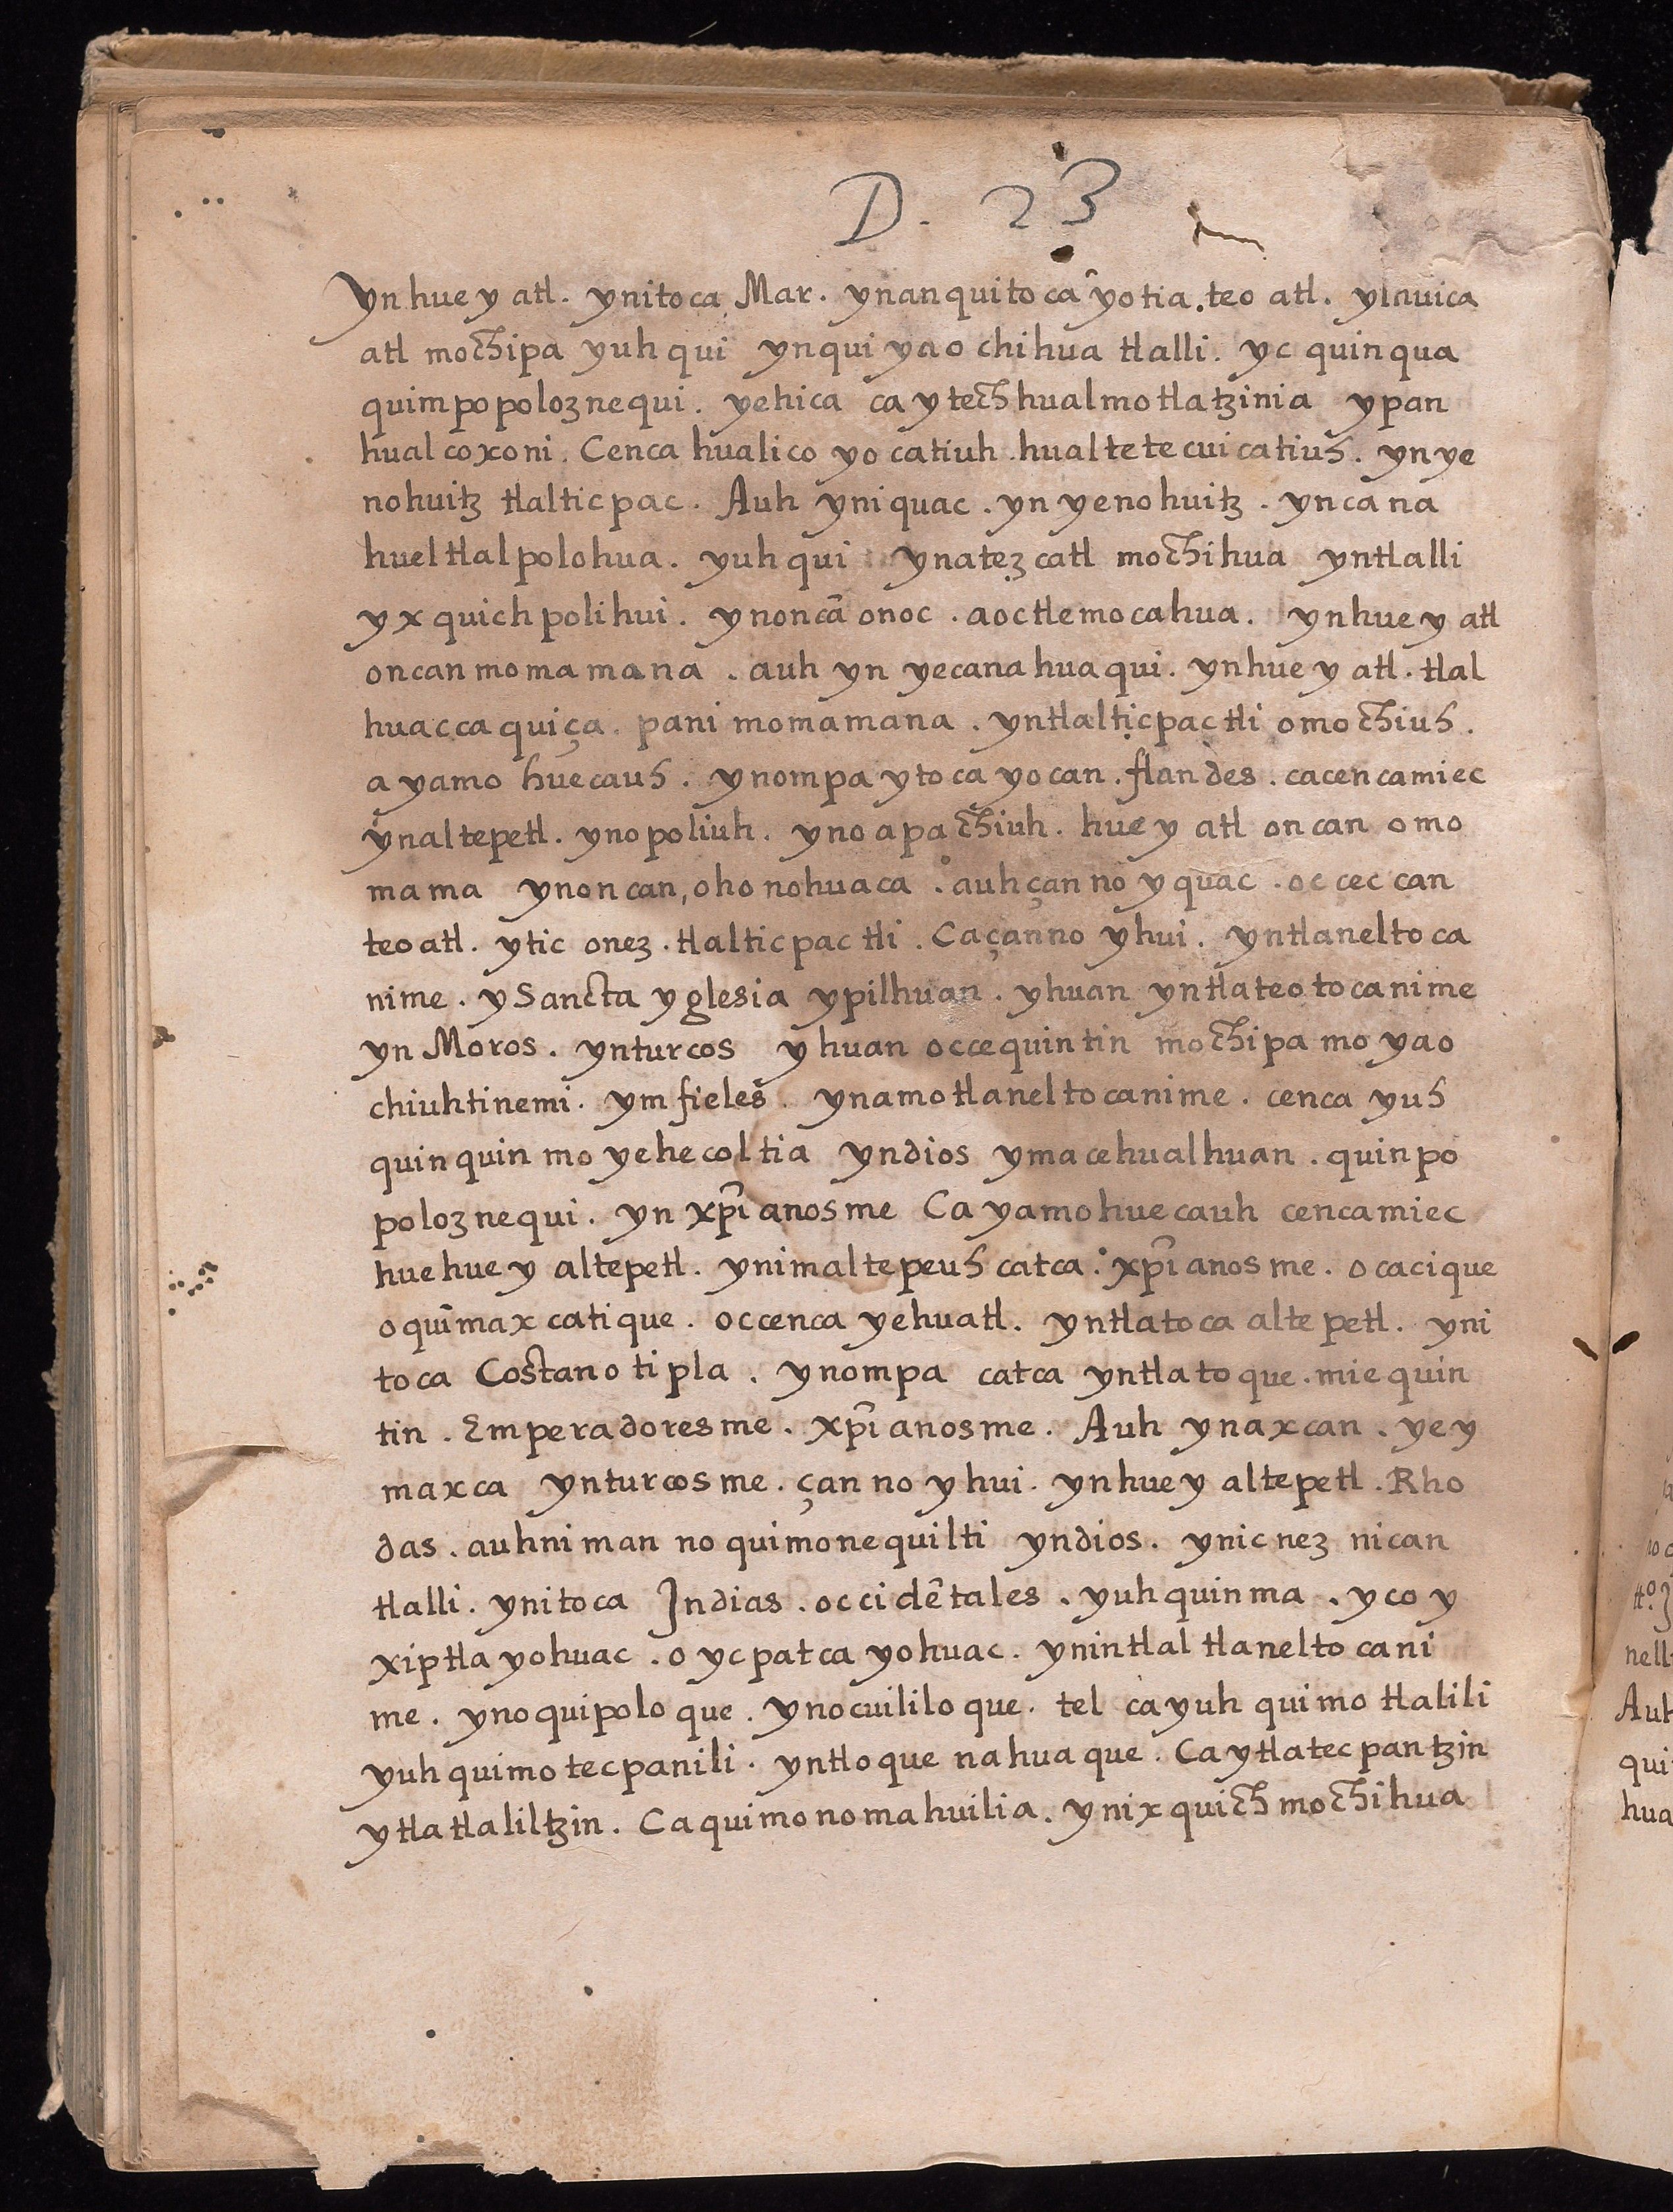 D. 23
Yn huey atl. ynitoca Mar. ynanquitocāyotia. teo atl. ylhuica
atl mochipa yuhqui ynquiyaochihua tlalli. yc quinqua
quimpopoloznequi. yehica ca ytech hualmotlatzinia ypan
hualcoxoni. Cenca hualicoyocatiuh. hualtetecuicatiuh. ynye
nohuitz tlalticpac. Auh yniquac. yn yenohuitz. yncana
hueltlalpolohua. yuhqui ynatezcatl mochihua yntlalli
yxquich polihui. ynoncā onoc. aoctlemocahua. ynhuey atl
oncan momamana. auh yn yecanahuaqui. ynhuey atl. tlal
huaccaquiça. pani momamana. yntlalticpactli omochiuh.
ayamo huecauh. ynompa ytocayocan. flandes. cacencamiec
ynaltepetl. ynopoliuh. ynoapachiuh. huey atl oncan omo
mama ynoncan, ohonohuaca. auhçanno yquac. oc ceccan
teoatl. ytic onez. tlalticpactli. Caçanno yhui. yntlaneltoca
nime. ySancta yglesia ypilhuan. yhuan yntlateotocanime
yn Moros. ynturcos yhuan occequintin mochipa moyao
chiuhtinemi. ymfieles. ynamotlaneltocanime. cenca yuh
quinquinmoyehecoltia yndios ymacehualhuan. quinpo
poloznequi. yn xp̄ianosme Cayamohuecauh cencamiec
huehuey altepetl. ynimaltepeuh catca. xp̄ianosme. ocacique
oquīmaxcatique. occenca yehuatl. yntlatoca altepetl. yni
toca Costanotipla. ynompa catca yntlatoque. miequin
tin. Emperadoresme. xp̄ianosme. Auh ynaxcan. yey
maxca ynturcosme. çan no yhui. ynhuey altepetl. Rho
das. auhniman no quimonequilti yndios. ynic nez nican
tlalli. ynitoca Indias. occidētales. yuhquinma. ycoy
xiptlayohuac. o ycpatcayohuac. ynintlal tlaneltocani
me. ynoquipoloque. ynocuililoque. tel cayuh quimotlalili
yuhquimotecpanili. yntloque nahuaque. Caytlatecpantzin
ytlatlaliltzin. Caquimonomahuilia. ynixquich mochihua